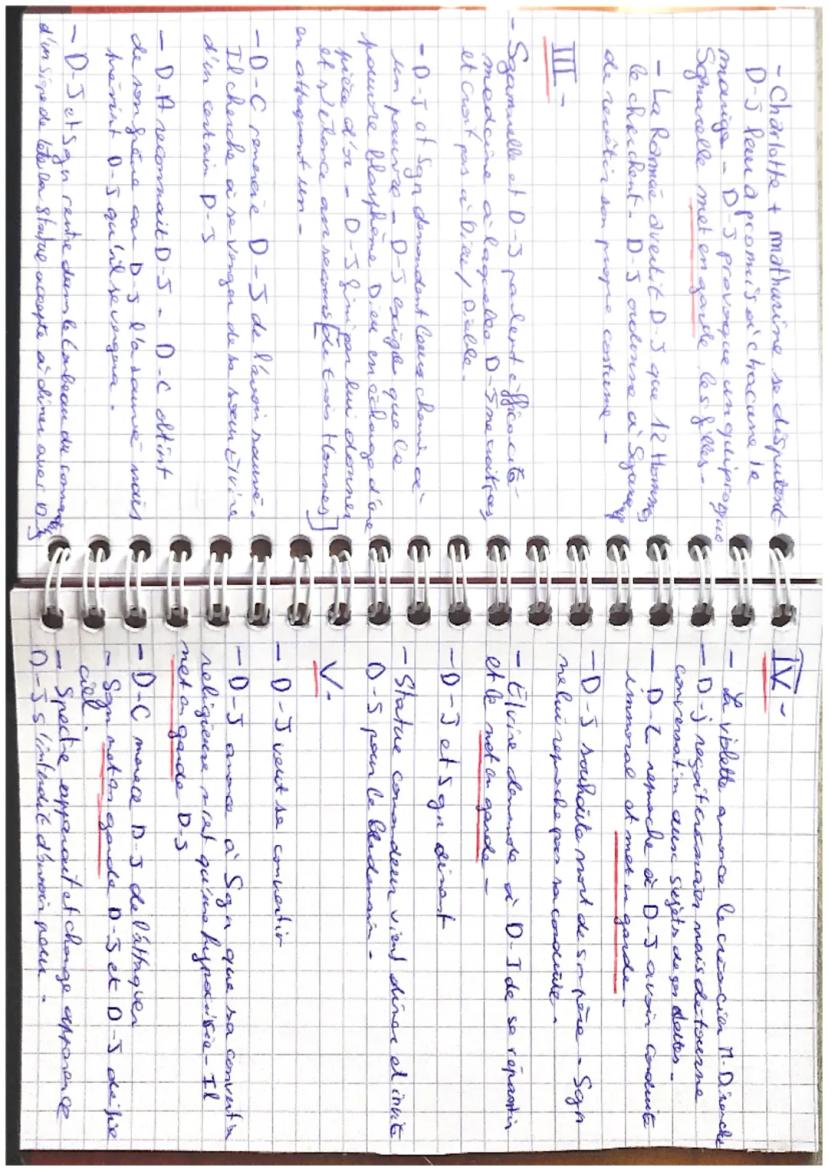 - Charlotte + mathurine se disputent
D-J leur a promis à chacune le
mariage - D-J provoque un quiproquo
Sganarelle met en garde les filles -
- La Ramée avertit D-J que 12 Hommes
le cherchent - D-J ordonne à Sganarelle
de revêtir son propre costume -
III -
- Sganarelle et D-J parlent efficacité
medecine à laquelle D-J ne croit pas
et croit pas à Dieu / Diable.
- D-J et Sgn demandent leurs chemin à
un pauvre - D-J exige que le
pauvre blasphème Dieu en échange d'une
pièce d'or - D-J fini par lui donner
et s'élance au secours [de trois Hommes]
en attaquent un -
- D-C remercie D-J de l'avoir sauvé.
Il cherche à se venger de sa soeur Elvire
d'un certain D-J
- D-A reconnait D-J - D-C
de son frère car D-J l'a sauvé mais
prévient D-J qu'il se vengera.
- D-J et Sgn rentre dans le tombeau du comman
d'un signe de tête la statue accepte à diner avec D-J
IV -
- La violette annonce le créancier M. Dimanche
- D-J reçoit créancier mais détourne
conversation aux sujets de ses dettes -
- D-L reproche à D-J avoir conduite
immoral et met en garde -
- D-J souhaite mort de son père - Sgn
ne lui reproche pas sa conduite.
- Elvire demande à D-J de se repentir
et le met en garde -
- D-J et Sgn dinent
- Statue commandeur vient diner et invite
D-J pour le lendemain -
V -
- D-J veut se convertir
- D-J avoue à Sgn que sa conversion
religieuse n'est qu'une hypocrisie - Il
met en garde D-J
- D-C menace D-J de l'attaquer
- Sgn met en garde D-J et D-J défie
ciel.
- Spectre apparait et change apparence
D-J s'interdit d'avoir peur.